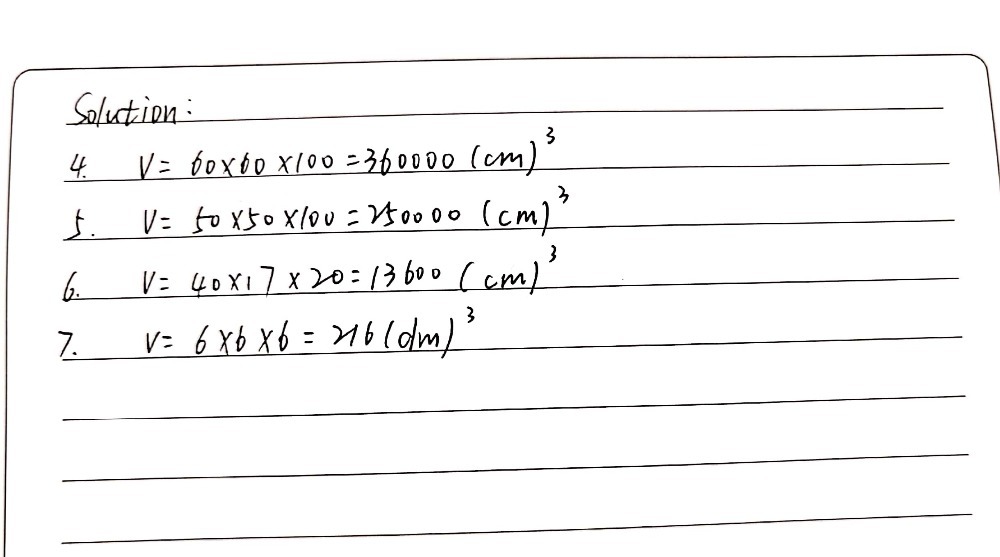 Solution:
4. V= 60×60×100=360000 (cm)³
5. V= 50×50×100=250000 (cm)³
6. V= 40×17×20=13600 (cm)³
7. V= 6×6×6=216(dm)³